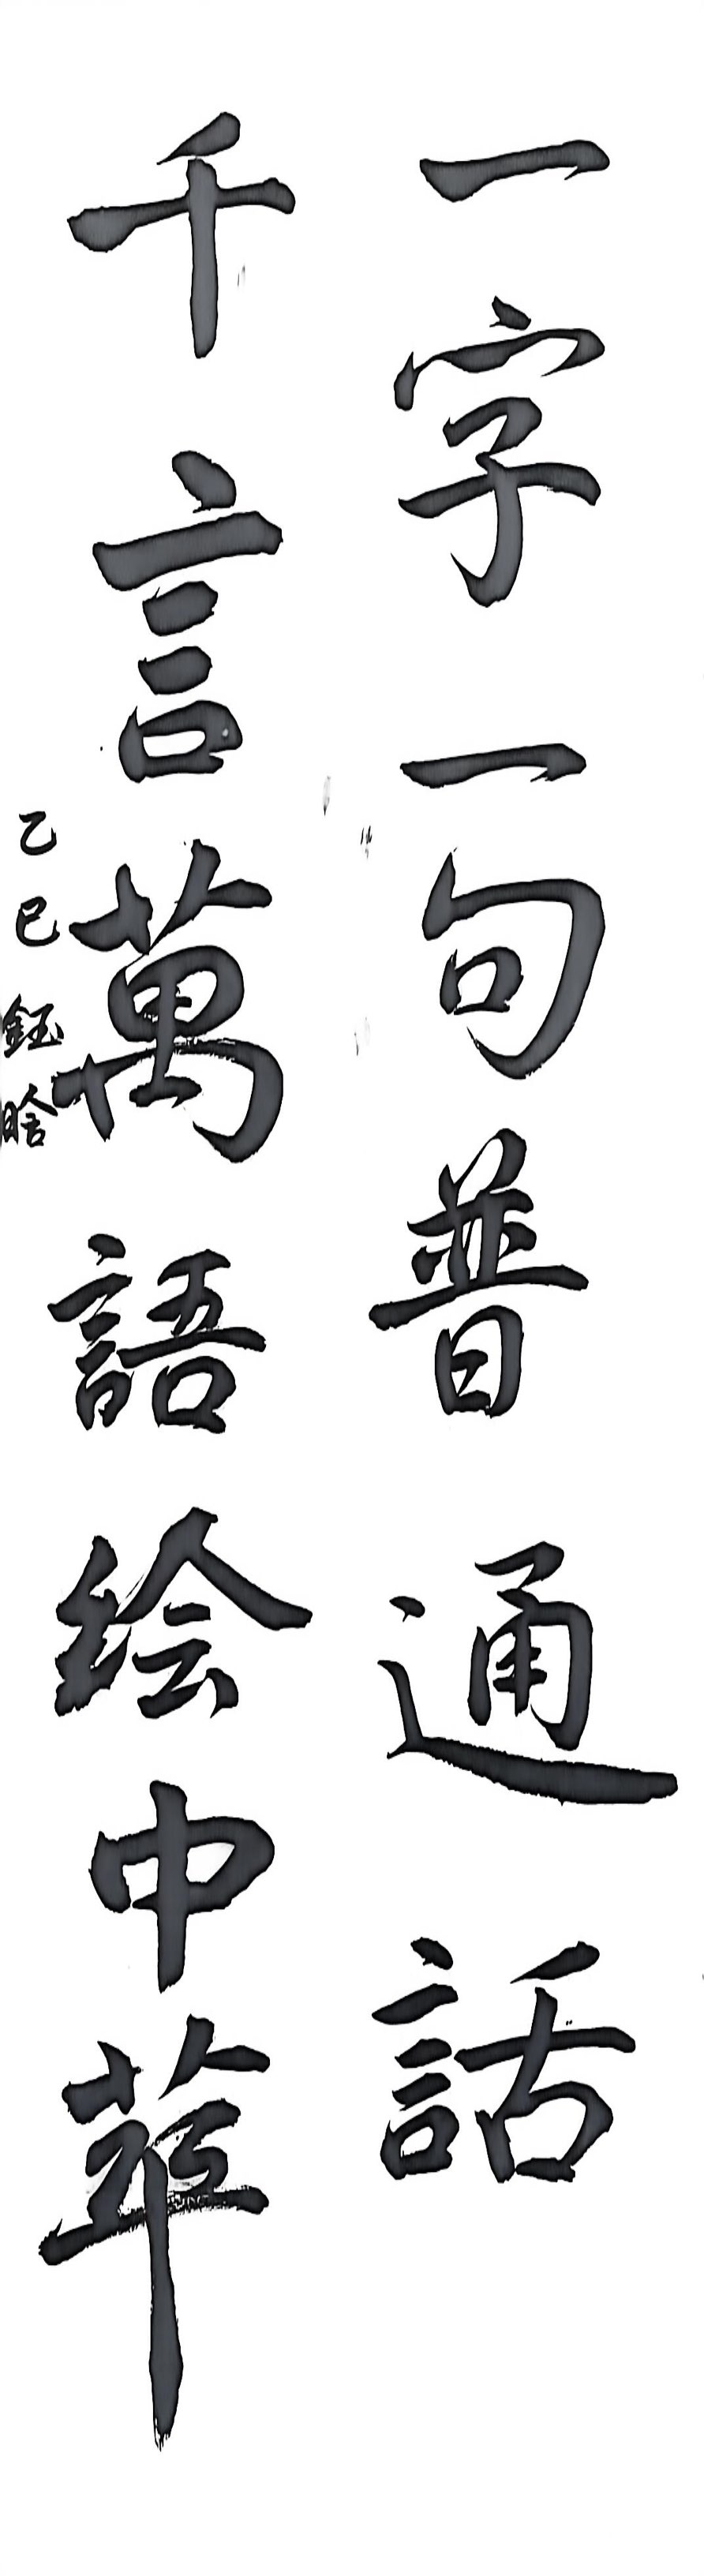 一字一句普通話
千言萬語绘中華
乙巳 鈺晗